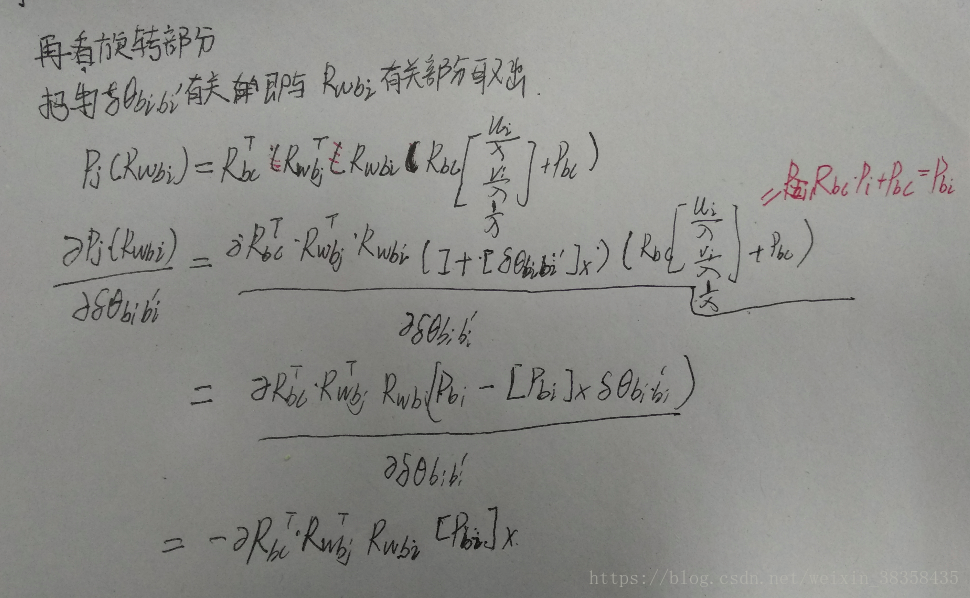 再看旋转部分
把与δθbibi'有关即与 Rwbi 有关部分取出.
Pj(Rwbi) = Rbc^T Rwbj^T Rwbi ( Rbc [ui/λ vi/λ 1/λ] + Pbc )
= Rbc·Pi + Pbc = Pbi
∂Pj(Rwbi)/∂δθbibi' = ∂Rbc^T·Rwbj^T·Rwbi (I + [δθbibi']x) (Rbc [ui/λ vi/λ 1/λ] + Pbc) / ∂δθbibi'
= ∂Rbc^T·Rwbj^T Rwbi (Pbi - [Pbi]x δθbibi') / ∂δθbibi'
= -∂Rbc^T·Rwbj^T Rwbi [Pbi]x
https://blog.csdn.net/weixin_38358435